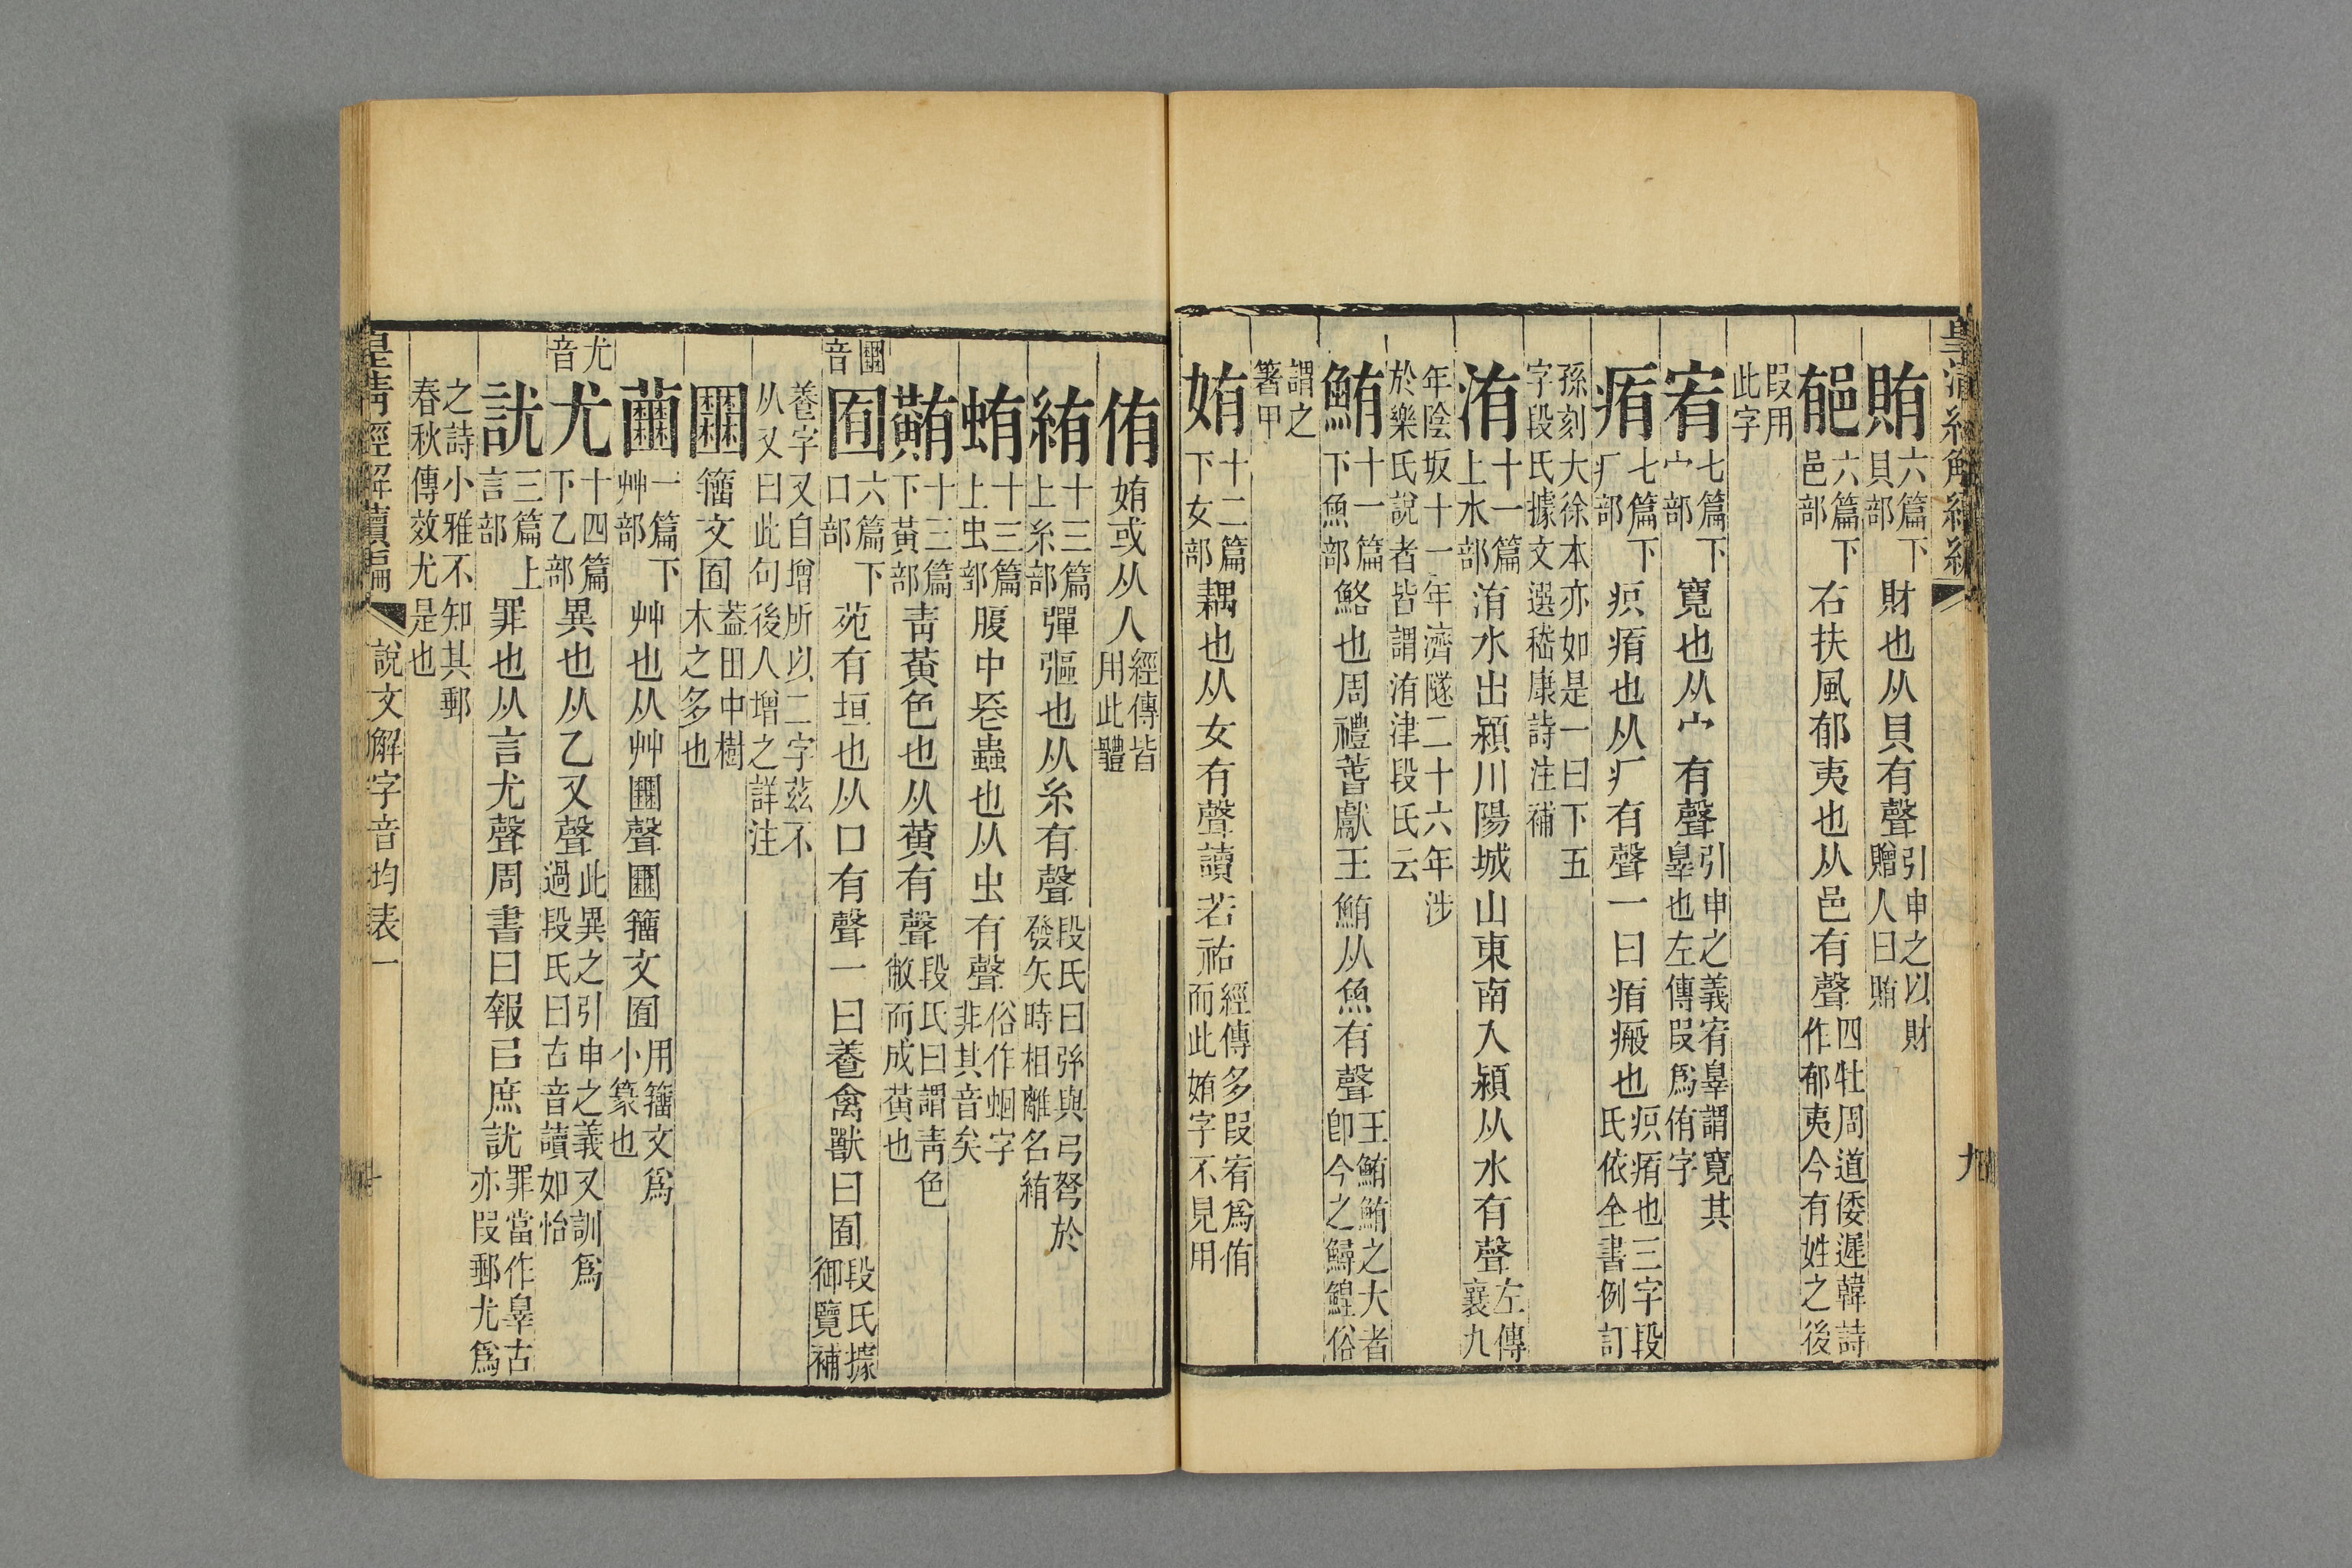 皇清經解續編
九
賄六篇下貝部財也从貝有聲引申之以財贈人曰賄
郁六篇下邑部右扶風郁夷也从邑有聲四牡周道倭遲韓詩作郁夷今有姓之後
叚用此字
宥七篇下宀部寬也从宀有聲引申之義宥辠謂寬其辠也左傳叚爲侑字
痏七篇下疒部疻痏也从疒有聲一曰痏瘢也疻痏也三字段氏依全書例訂
孫刻大徐本亦如是一曰下五字段氏據文選嵇康詩注補
洧十一篇上水部洧水出潁川陽城山東南入潁从水有聲左傳襄九
年陰坂十一年濟隧二十六年涉於樂氏說者皆謂洧津段氏云
鮪十一篇下魚部鮥也周禮萅獻王鮪从魚有聲王鮪鮪之大者卽今之鱘鰉俗
謂之箸甲
姷十二篇下女部耦也从女有聲讀若祐經傳多叚宥爲侑而此姷字不見用
侑姷或从人經傳皆用此體
絠十三篇上糸部彈彄也从糸有聲段氏曰弶與弓弩於發矢時相離名絠
蛕十三篇上虫部腹中长蟲也从虫有聲俗作蛔字非其音矣
䵋十三篇下黃部靑黃色也从黃有聲段氏曰謂靑色敝而成黃也
𡈹音囿六篇下口部苑有垣也从口有聲一曰養禽獸曰囿段氏據御覽補
養字又自增所以二字茲不从又曰此句後人增之詳注
𡈹籒文囿蓋田中樹木之多也
𧂇一篇下艸部艸也从艸𡈹聲𡈹籒文囿用籒文爲小篆也
尤音尤十四篇下乙部異也从乙又聲此異之引申之義又訓爲過段氏曰古音讀如怡
訧三篇上言部罪也从言尤聲周書曰報㠯庶訧罪當作辠古亦叚郵尤爲
之詩小雅不知其郵春秋傳效尤是也
皇淸經解續編 說文解字音均表一